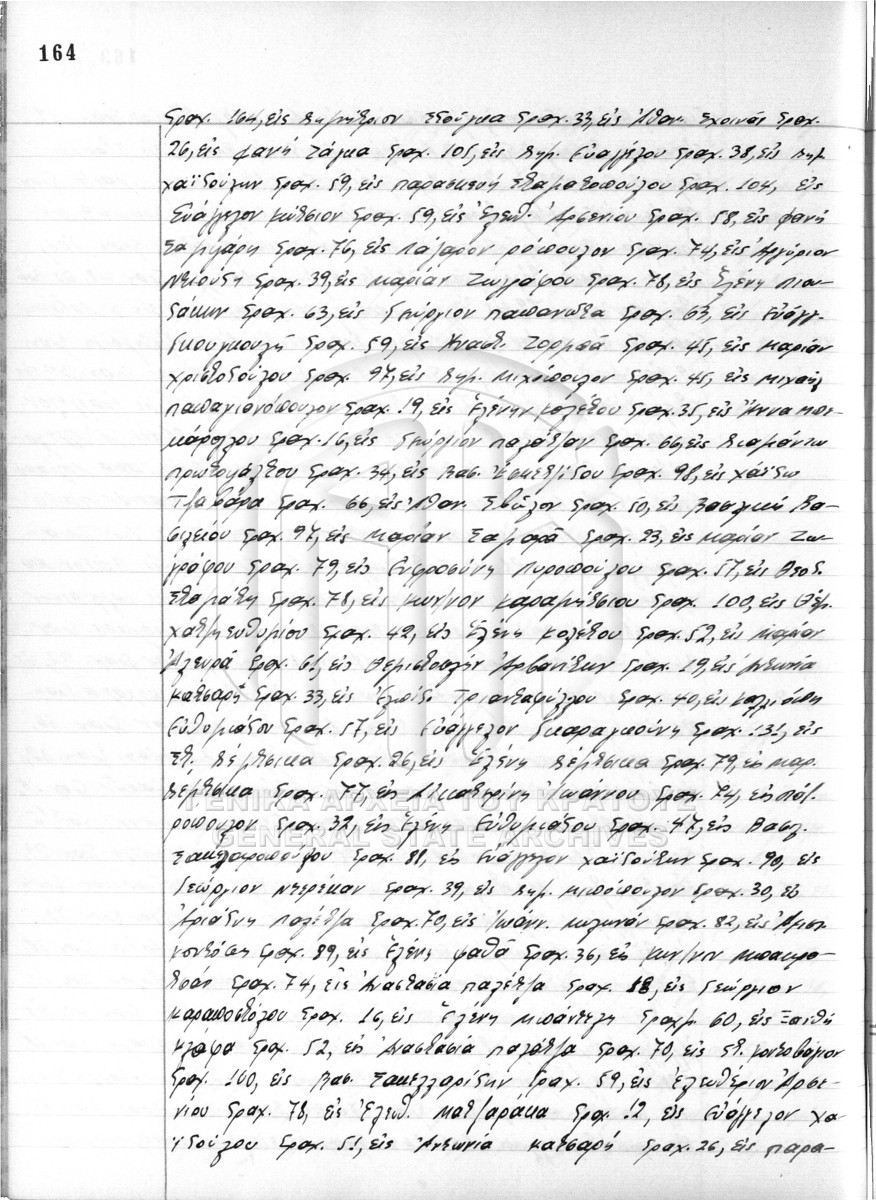 164
δραχ. 164, εἰς Δημήτριον Στούγκα δραχ. 33, εἰς Ἀθαν. Σχοινᾶν δραχ.
26, εἰς Φανή Ζάγκα δραχ. 101, εἰς Δημ. Εὐαγγέλου δραχ. 38, εἰς Δημ.
Χαϊδούλην δραχ. 59, εἰς Παρασκευή Σταματοπούλου δραχ. 104, εἰς
Εὐάγγελον Κώτσιον δραχ. 59, εἰς Ἐλευθ. Ἀρσενίου δραχ. 58, εἰς Φανή
Σαμαρᾶ δραχ. 76, εἰς Λάζαρον Ρόπουλον δραχ. 74, εἰς Ἀργύριον
δραχ. 39, εἰς Μαρίαν Ζωγράφου δραχ. 78, εἰς Ἑλένη Λιον-
δάκην δραχ. 63, εἰς Γεώργιον Παπανώτα δραχ. 63, εἰς Εὐάγγ.
Γκουγκουλῆ δραχ. 59, εἰς Ἀναστ. Ζορμπᾶ δραχ. 45, εἰς Μαρίαν
Χριστοδούλου δραχ. 97, εἰς Δημ. Μιχόπουλον δραχ. 45, εἰς Μιχαήλ
Παπαγιαννόπουλον δραχ. 19, εἰς Ἑλένην Κολέτσου δραχ. 35, εἰς Ἄννα
δραχ. 16, εἰς Γεώργιον Παλάτζαν δραχ. 66, εἰς Διαμάντω
Πρωτοψάλτου δραχ. 34, εἰς Βασ. δραχ. 98, εἰς Χάϊδω
Τζαβάρα δραχ. 66, εἰς Ἀθαν. Σβῶλον δραχ. 50, εἰς Βασιλική Βα-
σιλείου δραχ. 97, εἰς Μαρίαν Σαμαρᾶ δραχ. 23, εἰς Μαρίαν Ζω-
γράφου δραχ. 79, εἰς Εὐφροσύνη Πυροπούλου δραχ. 57, εἰς Θεοδ.
Σταμάτη δραχ. 78, εἰς Κων/νον Καραμήτσιου δραχ. 100, εἰς Θεμ.
Χατζηευθυμίου δραχ. 42, εἰς Ἑλένη Κολέτσου δραχ. 52, εἰς Μαρίαν
Ἀλευρᾶ δραχ. 61, εἰς Θεμιστοκλῆν Ἀρβανίτην δραχ. 19, εἰς Ἀντωνία
Κατσαρῆ δραχ. 33, εἰς Ἐλπίδα Τριανταφύλλου δραχ. 40, εἰς Καλλιόπη
Εὐθυμιάδου δραχ. 57, εἰς Εὐάγγελον Γκαραγκούνη δραχ. 131, εἰς
Στ. Δέμτσικα δραχ. 26, εἰς Ἑλένη Δέμτσικα δραχ. 79, εἰς Μαρ.
Δέμτσικα δραχ. 77, εἰς Αἰκατερίνη Ἰωάννου δραχ. 74, εἰς Λάζ.
Ρόπουλον δραχ. 32, εἰς Ἑλένη Εὐθυμιάδου δραχ. 47, εἰς Βασιλ.
δραχ. 88, εἰς Εὐάγγελον Χαϊδούτην δραχ. 90, εἰς
Γεώργιον Ντερέκαν δραχ. 39, εἰς Δημ. Μπόπουλον δραχ. 30, εἰς
Ἀριάδνη Παλέτζα δραχ. 70, εἰς Ἰωάνν. Μυλωνᾶν δραχ. 82, εἰς
Κοντόση δραχ. 89, εἰς Ἑλένη Φαθᾶ δραχ. 36, εἰς Κων/νον
δραχ. 74, εἰς Ἀναστασία Παλέτζα δραχ. 18, εἰς Γεώργιον
Καραποστόλου δραχ. 16, εἰς Ἑλένη Μπάντζη δραχμ. 60, εἰς Ξανθή
Κλάφα δραχ. 52, εἰς Ἀναστασία Παλάτζα δραχ. 70, εἰς Στ. Κοντοβάγιον
δραχ. 100, εἰς Βασ. Σακελλαρίδην δραχ. 59, εἰς Ἐλευθέριον Ἀρσε-
νίου δραχ. 78, εἰς Ἐλευθ. Ματζαράκα δραχ. 12, εἰς Εὐάγγελον Χα-
ϊδούλου δραχ. 51, εἰς Ἀντωνία Κατσαρῆ δραχ. 26, εἰς Παρα-
ΓΕΝΙΚΑ ΑΡΧΕΙΑ ΤΟΥ ΚΡΑΤΟΥΣ
GENERAL STATE ARCHIVES